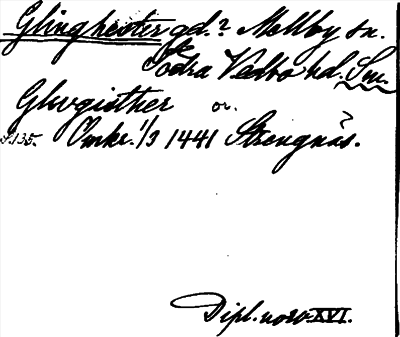 Glinghester gd.? Mellby sn.
Södra Vedbo hd. Sm.
Glwgisther or.
S.135. Omkr. 1/3 1441 Strengnäs.
Dipl. norv. XVI.